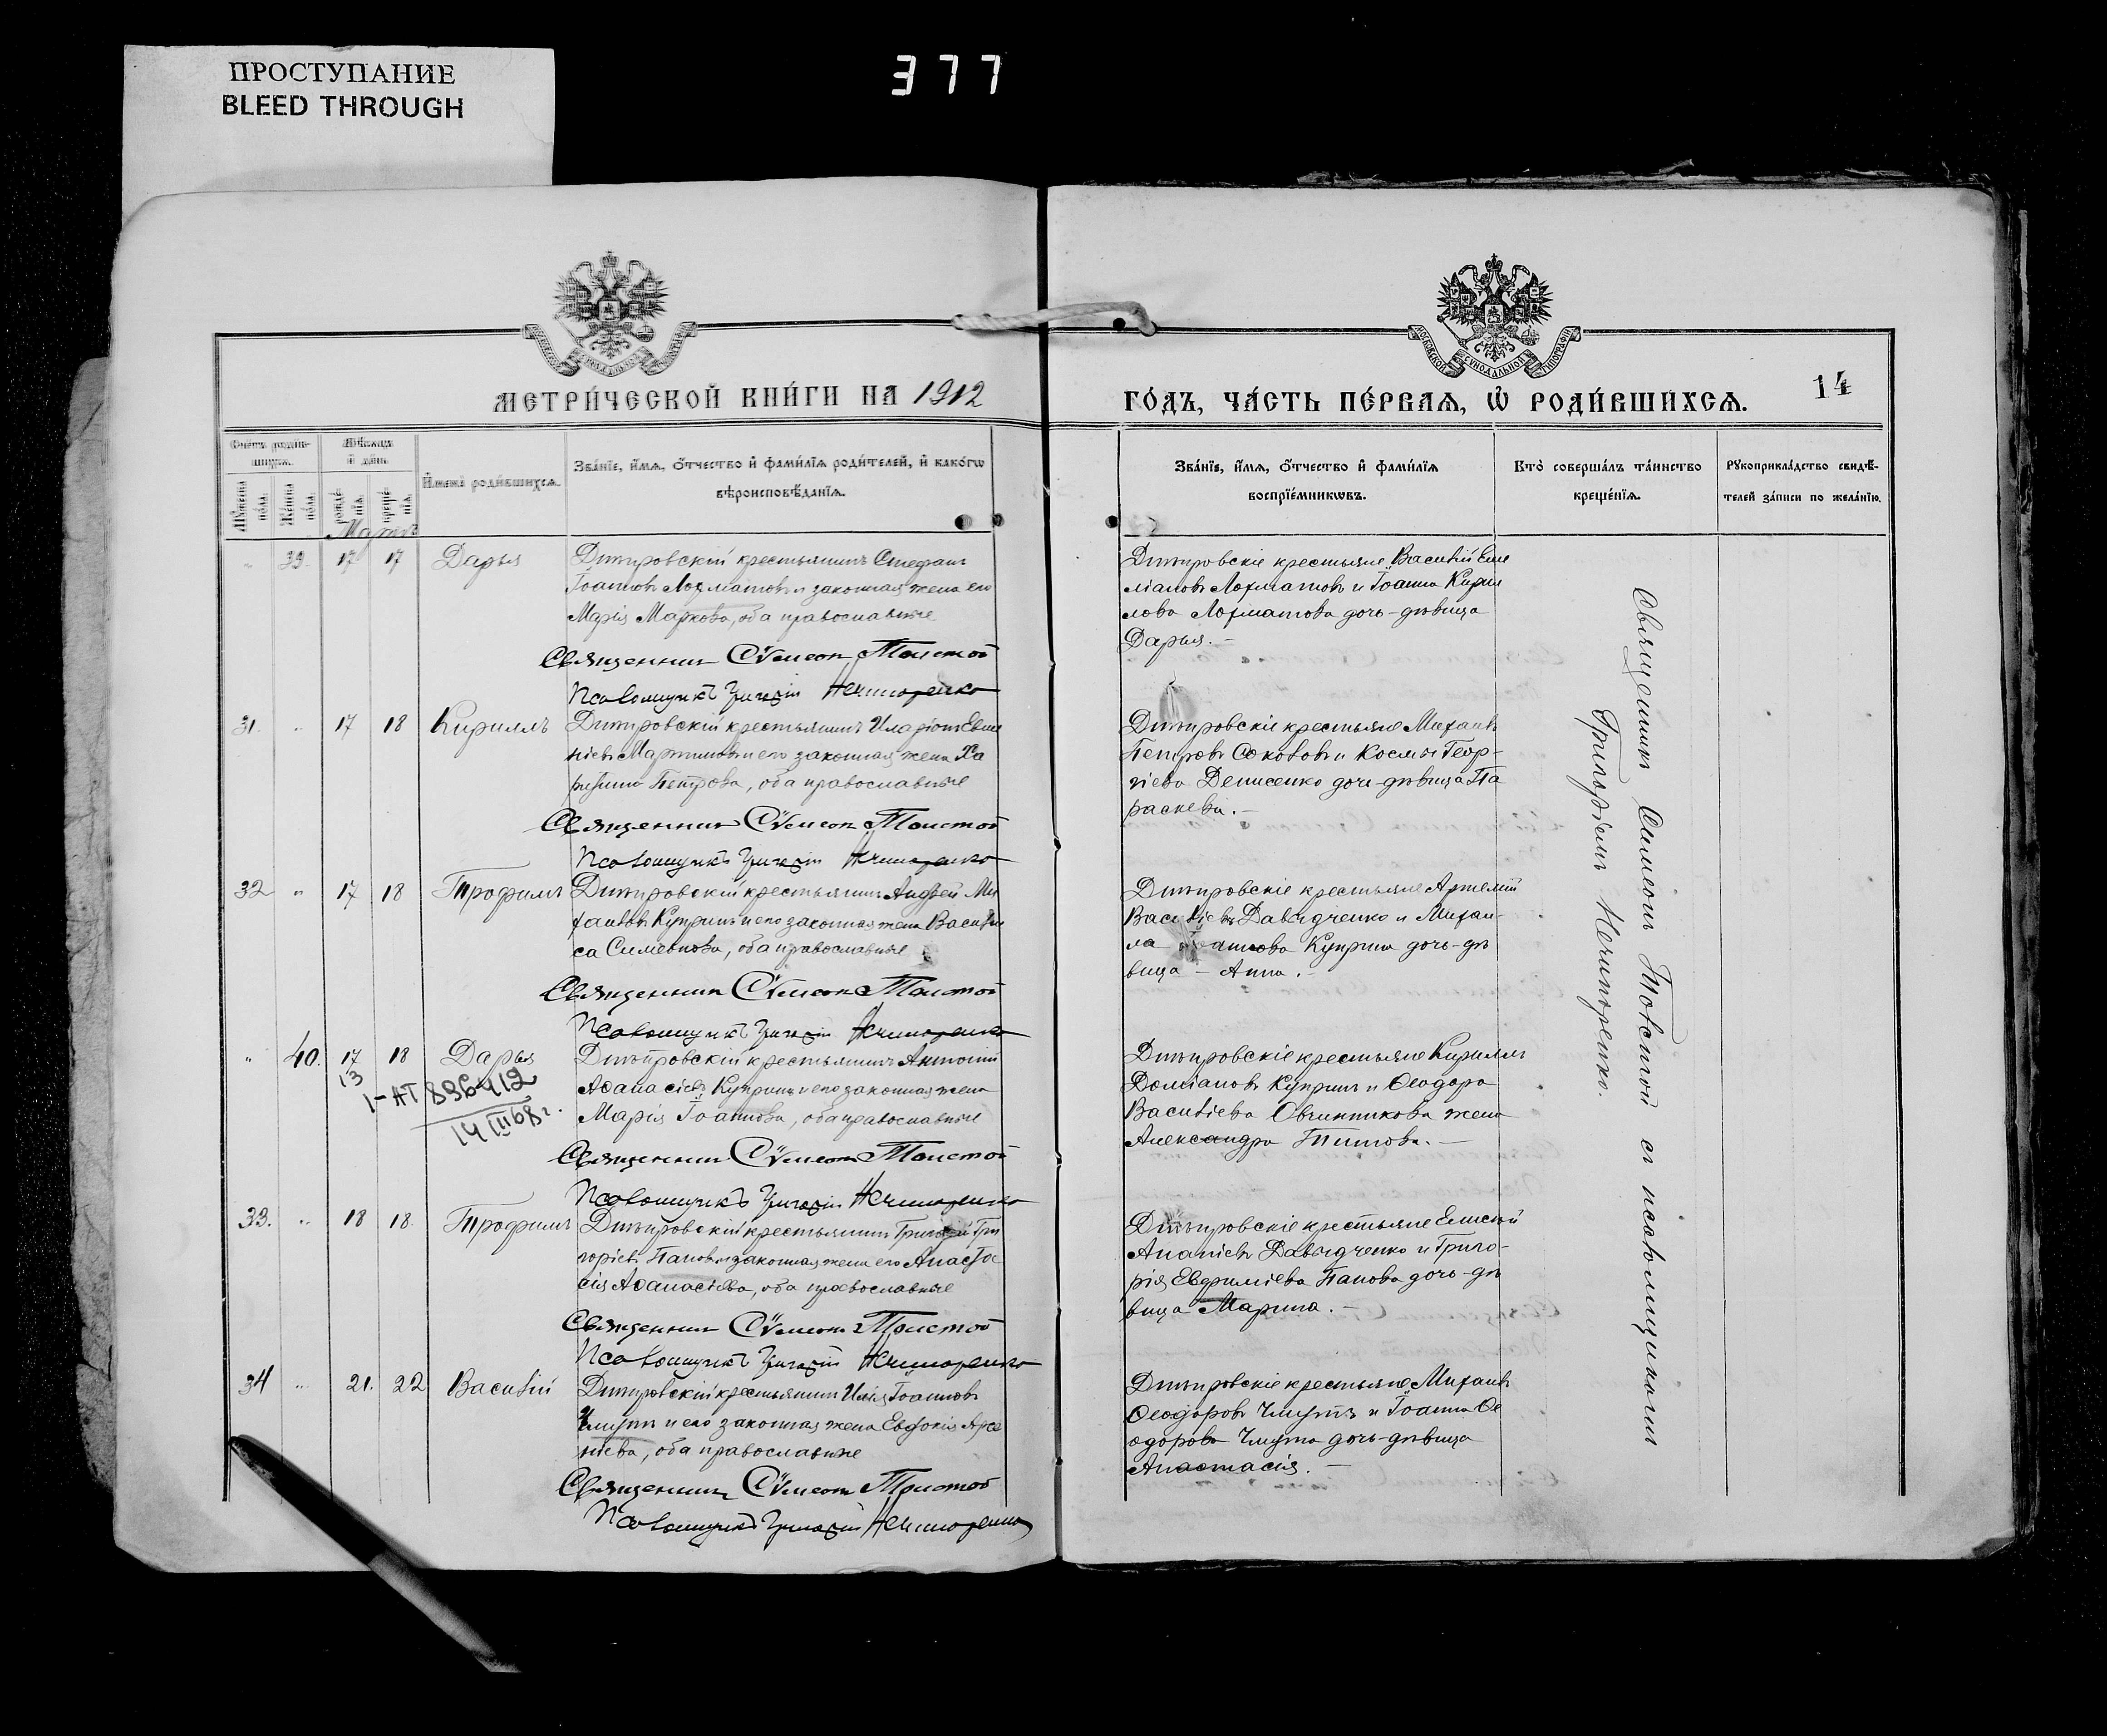 ПРОСТУПАНИЕ
BLEED THROUGH
377
МЕТРИ́ЧЕСКОЙ КНИ́ГИ НА 1912
ГО́ДЪ, ЧА́СТЬ ПЕ́РВАѦ, Ѡ РОДИ́ВШИХСѦ.
14
МОСКОВСКОЙ СѴНОДАЛЬНОЙ ТИПОГРАФІИ
Счетъ роди́вшихсѧ.
Му́жеска по́ла.
Же́нска по́ла.
Мѣ́сѧцъ и́ де́нь.
рожде́нїѧ.
креще́нїѧ.
И҆мена̀ роди́вшихсѧ.
Зва́нїе, и҆́мѧ, ѻ҆́тчество и҆ фами́лїѧ роди́телей, и҆ како́гѡ
вѣроисповѣ́данїѧ.
Мартъ
Зва́нїе, и҆́мѧ, ѻ҆́тчество и҆ фами́лїѧ
воспрїе́мникѡвъ.
Кто̀ соверша́лъ та́инство
креще́нїѧ.
Рꙋкоприкла́дство свидѣ́-
телей за́писи по жела́нїю.
" 39. 17 17 Дарья
Дмитровскій крестьянинъ Стефанъ
Іоанновъ Лохматовъ и законная жена его
Марія Маркова, оба православные
Священникъ Сѵмеонъ Толстой
Псаломщикъ Григорій Нечипоренко
Дмитровскіе крестьяне Василій Еме
ліановъ Лохматовъ и Іоанна Кирил
лова Лохматова дочь-дѣвица
Дарья.-
31. " 17 18 Кириллъ
Дмитровскій крестьянинъ Иларіонъ Евме
ніевъ Мартыновъ и его законная жена Ха
ритина Петрова, оба православные
Священникъ Сѵмеонъ Толстой
Псаломщикъ Григорій Нечипоренко
Дмитровскіе крестьяне Михаилъ
Петровъ Соколовъ и Космы Геор-
гіева Денисенко дочь-дѣвица Па
раскева.-
32 " 17 18 Трофимъ
Дмитровскій крестьянинъ Андрей Ми
хаиловъ Купринъ и его законная жена Васили
са Симеонова, оба православные
Священникъ Сѵмеонъ Толстой
Псаломщикъ Григорій Нечипоренко
Дмитровскіе крестьяне Артемій
Василіевъ Давидченко и Михаи-
ла Куприна дочь-дѣ
вица - Анна.-
" 40. 17 18 Дарья
13
I-АТ 896412
14 III 68 г.
Дмитровскій крестьянинъ Антоній
Аѳанасіевъ Купринъ и его законная жена
Марія Іоаннова, оба православные
Священникъ Сѵмеонъ Толстой
Псаломщикъ Григорій Нечипоренко
Дмитровскіе крестьяне Кириллъ
Доміановъ Купринъ и Ѳеодора
Василіева Овчинникова жена
Александра Титова.-
33. " 18 18. Трофимъ
Дмитровскій крестьянинъ Григорій Гри
горіевъ Пановъ и законная жена его Анаста
сія Аѳанасіева, оба православные
Священникъ Сѵмеонъ Толстой
Псаломщикъ Григорій Нечипоренко
Дмитровскіе крестьяне Елисей
Ананіевъ Давидченко и Григо-
рія Евфиміева Панова дочь-дѣ
вица Марина.-
34 " 21. 22 Василій
Дмитровскій крестьянинъ Илія Іоанновъ
Чмутъ и его законная жена Евдокія Арсе
ніева, оба православные
Священникъ Сѵмеонъ Толстой
Псаломщикъ Григорій Нечипоренко
Дмитровскіе крестьяне Михаилъ
Ѳеодоровъ Чмутъ и Іоанна Ѳе
одорова Чмута дочь-дѣвица
Анастасія.-
Священникъ Симеонъ Толстой съ псаломщикомъ
Григоріемъ Нечипоренко.